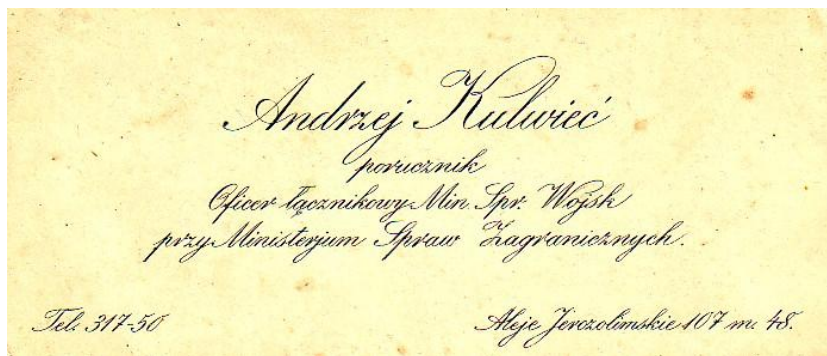 Andrzej Kulwieć
porucznik
Oficer łącznikowy Min. Spr. Wojsk
przy Ministerjum Spraw Zagranicznych.
Tel. 317-50
Aleje Jerozolimskie 107 m. 48.